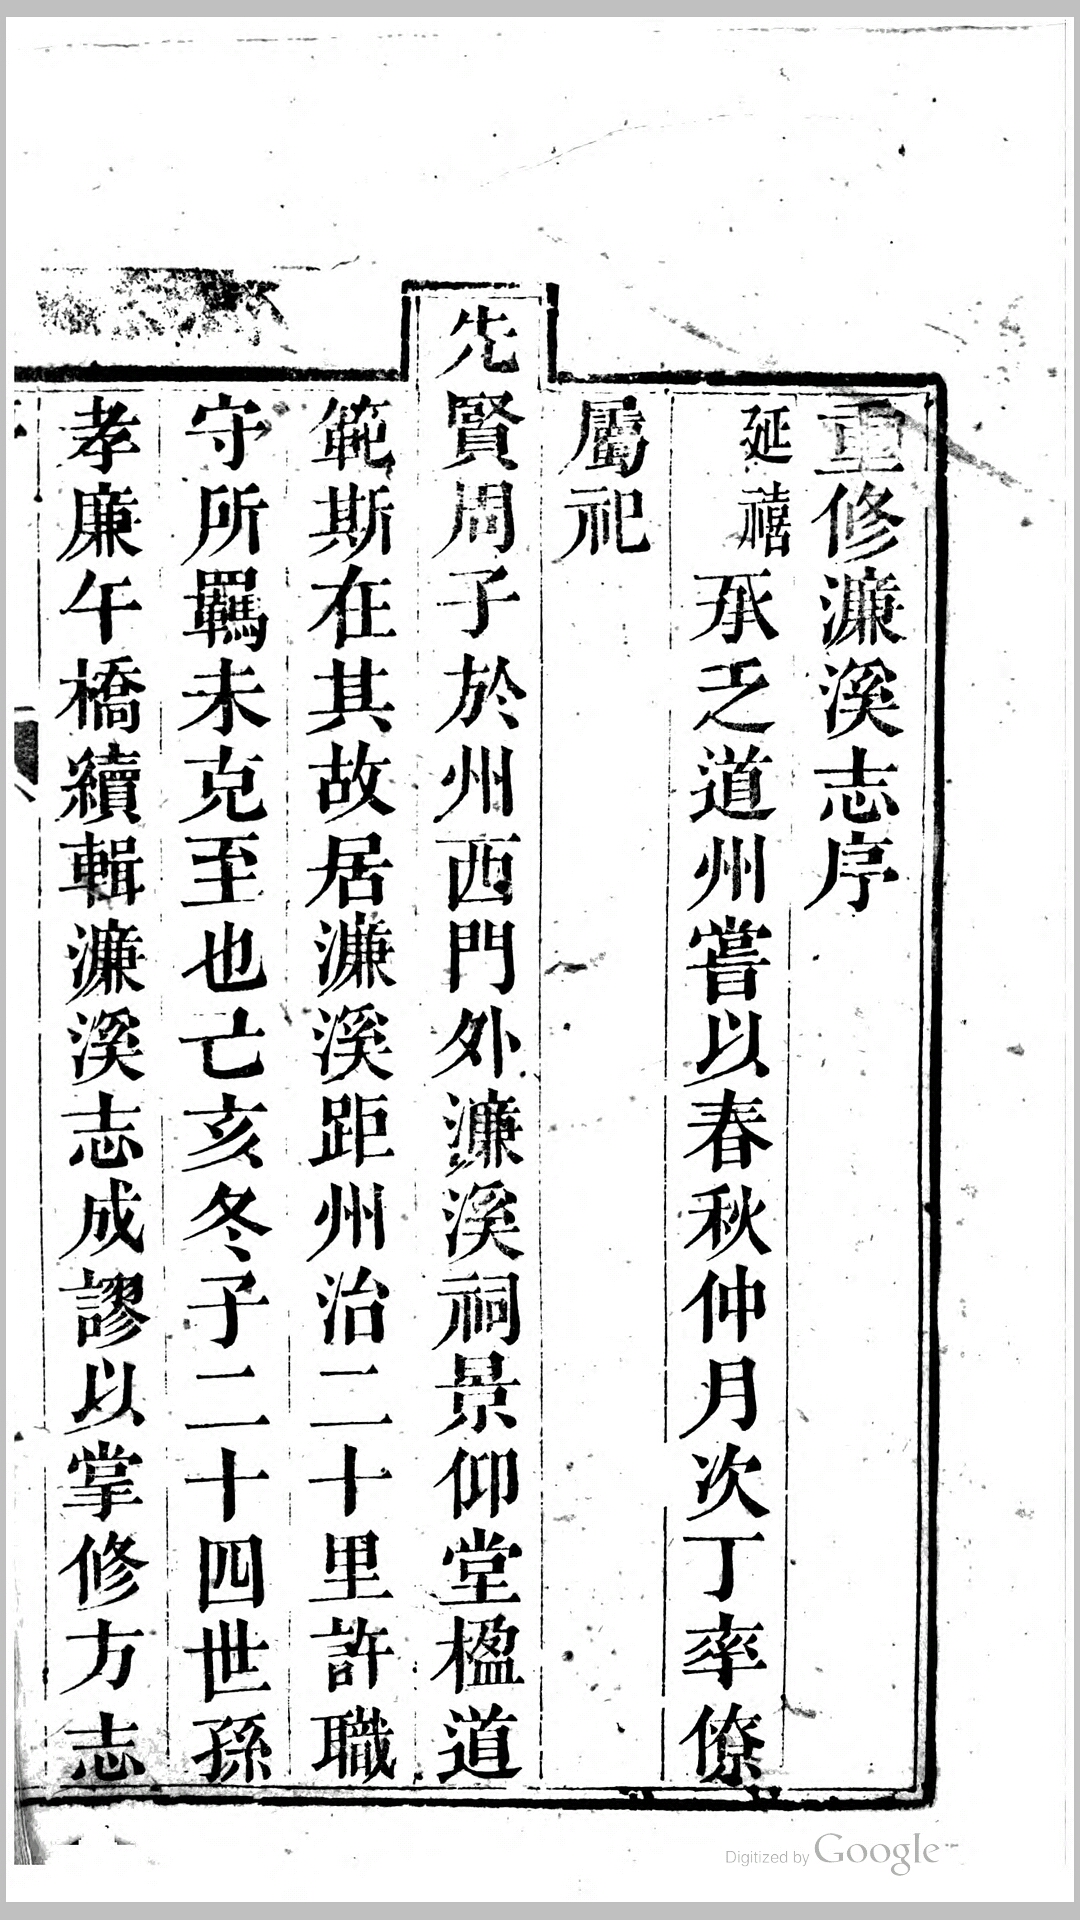 重修濂溪志序
延禧承乏道州嘗以春秋仲月次丁率僚
屬祀
先賢周子於州西門外濂溪祠景仰堂楹道
範斯在其故居濂溪距州治二十里許職
守所羈未克至也亡亥冬子二十四世孫
孝廉午橋續輯濂溪志成謬以掌修方志
Digitized by Google